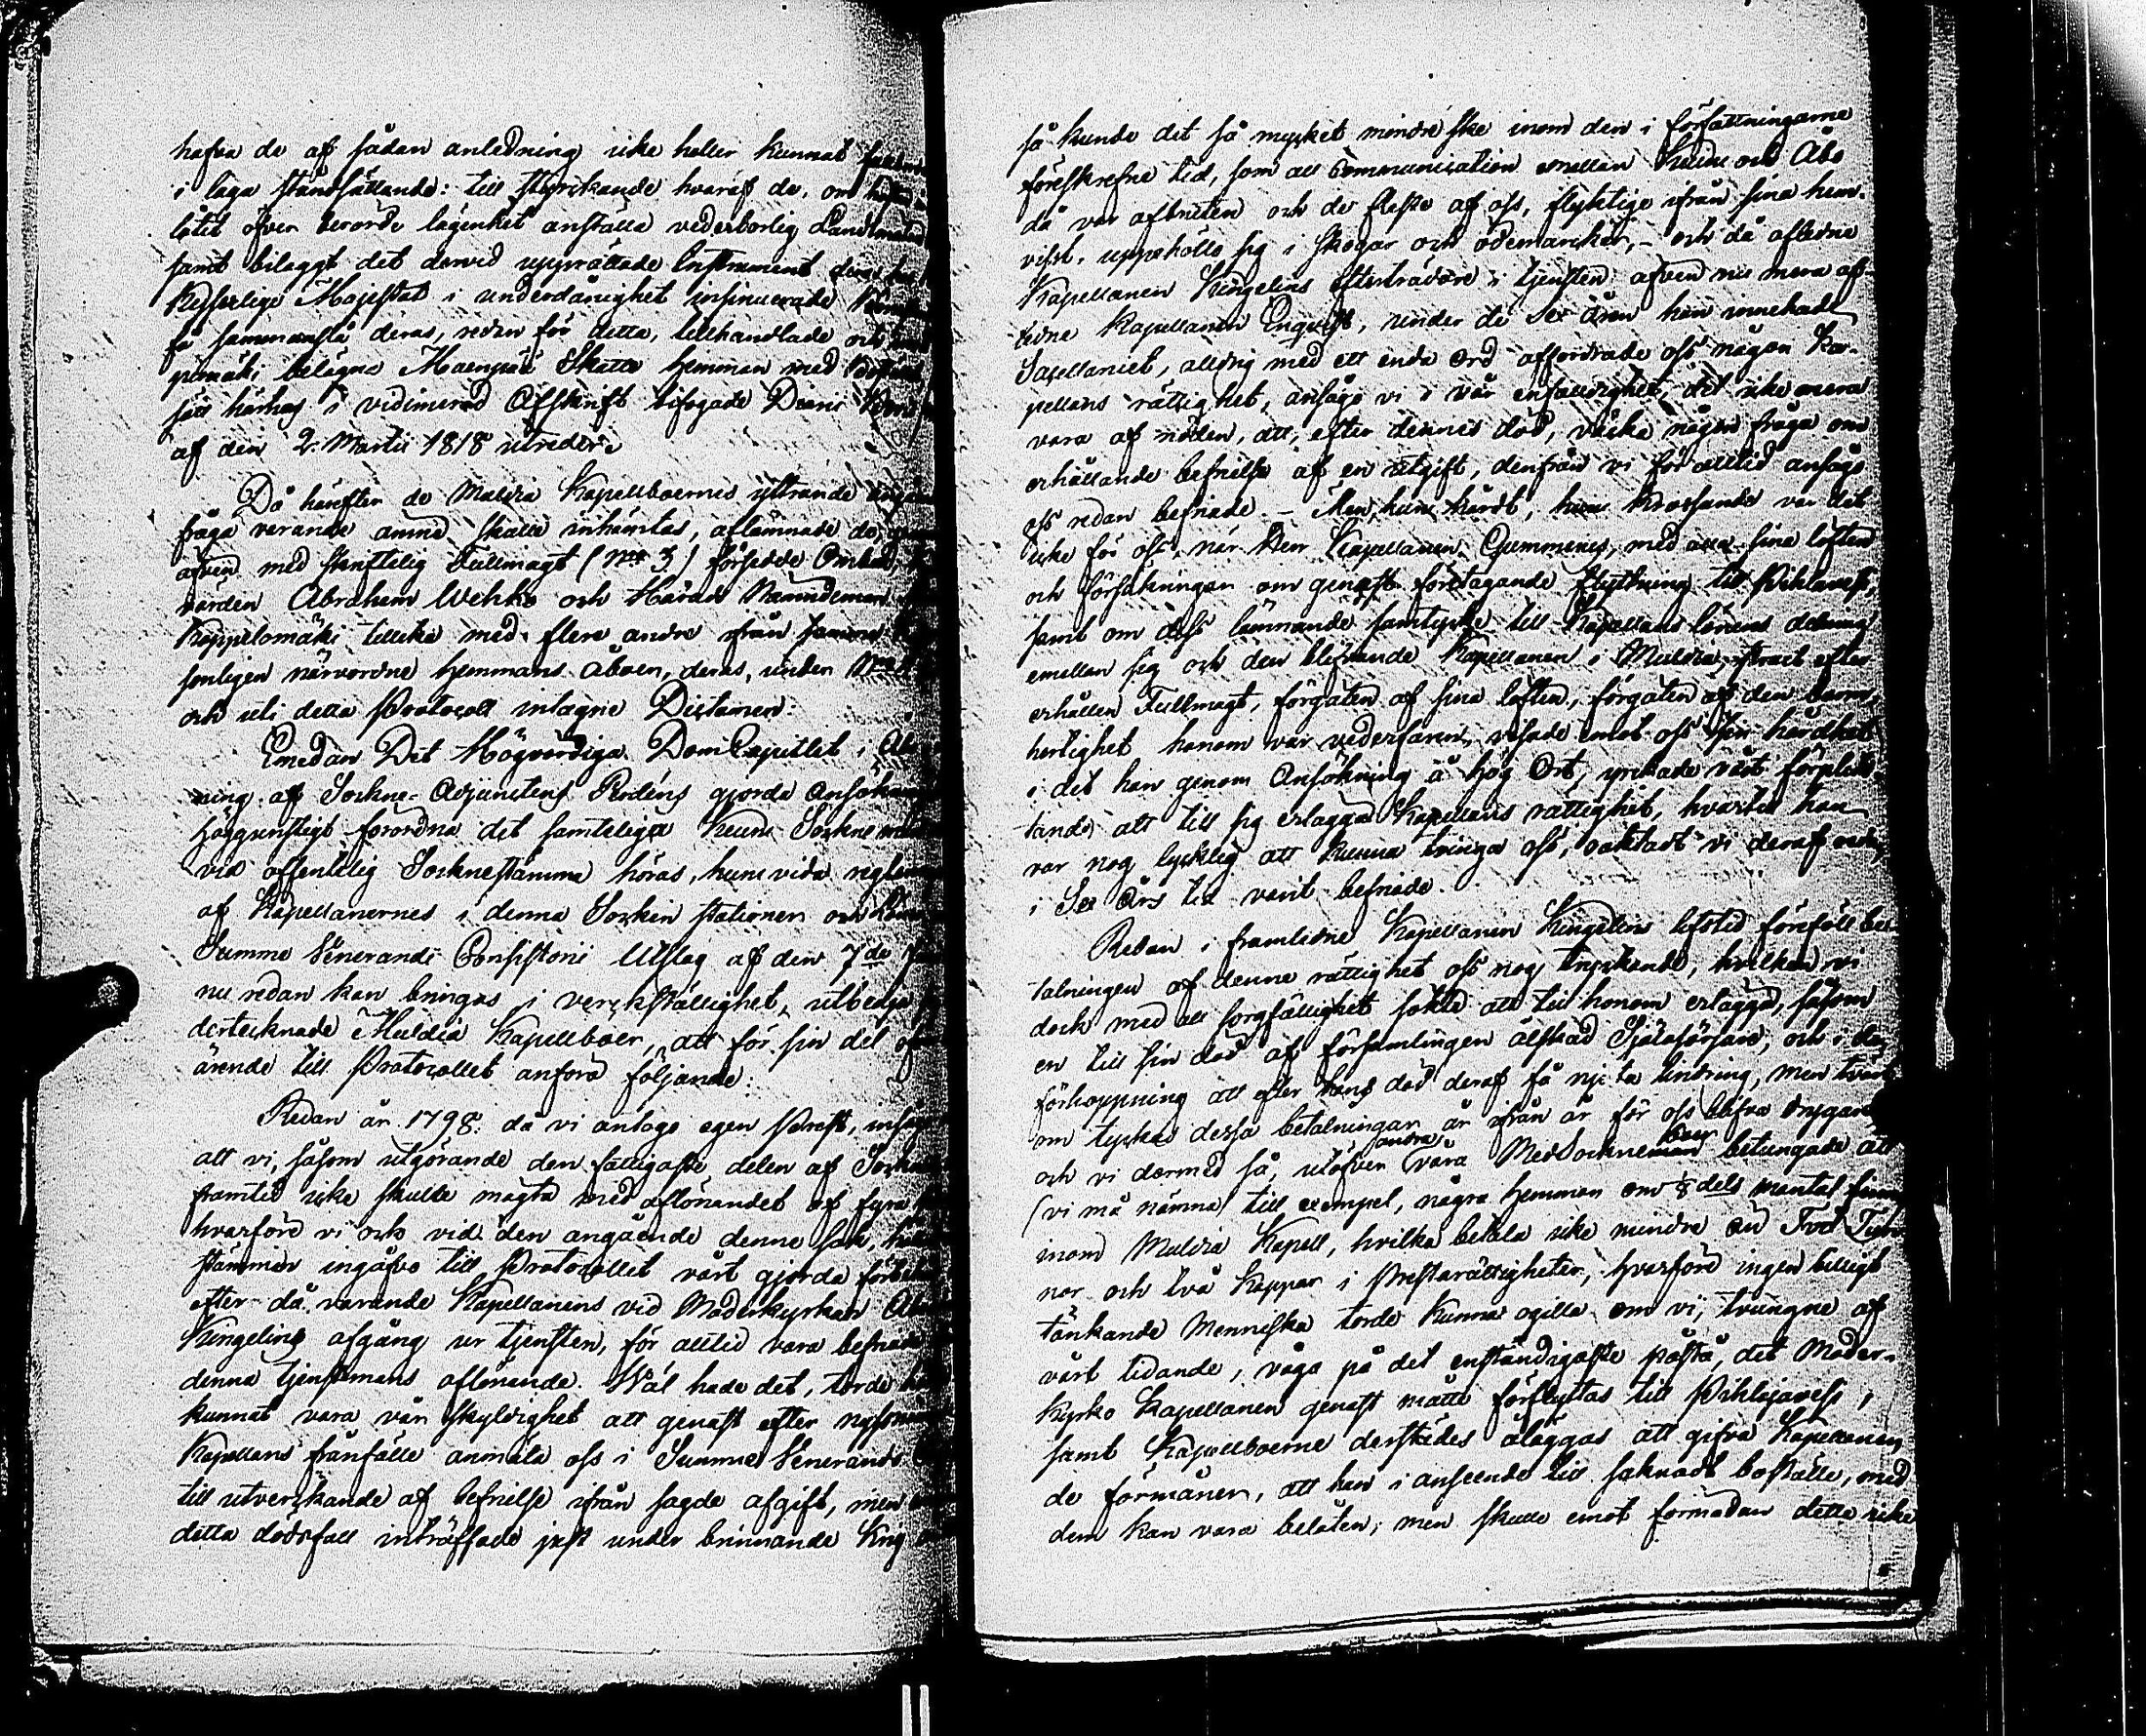 hafva de af sådan anledning icke heller kunnat
i laga ståndsättande: till styrkande hvaraf de, om
låtit öfver berörde lägenhet anställa vederbörlig
samt bilaggt det dervid upprättade Instrument
Kejserlige Majestät i underdånighet insinuerade
få sammanslå deras, redan för detta, tillhandlade och
belägna Skatte hemman med
sätt härhos i vidimerad Afskrift bifogade
af den 2. Martii 1818 utreder.
Då härefter de Muldia Kapellboernes yttrande
fråga varande ämne skulle inhämtas, aflämnade de,
äfven med skriftelig Fullmagt (N:o 3) försedde Ombud,
värden Abraham Wehko och Härads Nämndeman
Koppelomäki tillika med flere andre ifrån samma
sonligen närvordne hemmans åboer, deras, under
och uti detta Protocoll intagne Dictamen:
Emedan Det Högvördiga DomCapitlet i
ning af Sockne-Adjunctens gjorda Ansök
höggunstigt förordna det samteliga Keuru Sockne
vid offentelig Socknestämma höras, huruvida
af Kapellanernes i denna Socken stationer och
Summe Venerandi Consistorii Utslag af den 7de
nu redan kan bringas i verckställighet, utbedja
dertecknade Muldia Kapellboer, att för sin del
ärende till Protocollet anföra följande:
Redan år 1798. då vi antogo egen Prest,
att vi, såsom utgörande den fattigaste delen af
framtid icke skulle mägta med aflönandet af fyra
hvarföre vi och vid den angående denne sak,
stämmor ingåfvo till Protocollet vårt gjorda
efter då varande Kapellanens vid Moderkyrkan
Kingelins afgång ur tjensten, för alltid vara befriade
denna tjenstemans aflönande. Wäl hade det, torde
kunnat vara vår skyldighet att genast efter
Kapellans frånfälle anmäla oss i Summe Venerando
till utverkande af befrielse ifrån sagde afgift, men
detta dödsfall inträffade just under brinnande Krig
så kunde det så mycket mindre ske inom den i författningarne
föreskrefne tid, som all Communication emellan Keuru och Åbo
då var afbruten och de fleste af oss, flyktige ifrån sina hem-
vist, uppehöllo sig i skogar och ödemarcker, - och då aflidne
Kapellanen Kingelins efterträdare i tjensten äfven nu mera af-
ledne Kapellanen Enqvist, under de Sex Åren han innehade
Sacellaniet, alldrig med ett enda Ord affordrade oss någon Ka-
pellans rättighet, ansågo vi i vår enfaldighet, det icke mera
vara af nöden, att, efter dennes död, väcka någon fråga om
erhållande befrielse af en utgift, derifrån vi för alltid ansågo
oss redan befriade. - Men huru hårdt, huru krossande var det
icke för oss, när Herr Kapellanen Gummerus, med alla sina löften
och försäkringar om genast företagande flyttning till Pihlavesi,
samt om dess lämnande samtycke till Kapellans lönens delning
emellan sig och den blifvande Kapellanen i Muldia, straxt efter
erhållen Fullmagt, förgäten af sina löften, förgäten af den barm-
hertighet honom var vederfaren, visade emot oss sin hårdhet
i det han genom Ansökning å hög Ort, yrckade vårt förplich-
tande att till sig erlägga Kapellans rättighet, hvartill han
var nog lycklig att kunna tvinga oss, oaktadt vi deraf redan
i Sex Års tid varit befriade.
Redan i framlidne Kapellanen Kingelins lifstid föreföll bet
talningen af denne rättighet oss nog tryckande, hvilken vi
dock med all sorgfällighet sökte att till honom erlägga, såsom
en till sin död af församlingen älskad Själasörjare, och i den
förhoppning att efter hans död deraf få njuta lindring, men tvärt
om tyckas dessa betalningar år ifrån år för oss blifva drygare,
och vi dermed så, utöfver våra andra MedSockneboer betungade att
(vi må nämna till exempel, några hemman om 1/8 dels mantal finnas
inom Muldia Kapell, hvilka betala icke mindre än Två Tun-
nor och två kappar i Prestarättigheter, hvarföre ingen billigt
tänkande Menniska torde kunna ogilla om vi, tvungne af
vårt lidande, våga på det enständigaste påstå, det Moder-
kyrko Kapellanen genast måtte förflyttas till Pihlajavesi,
samt Kapellboerne derstädes åläggas att gifva Kapellanen
de förmåner, att han i anseende till saknadt boställe, med
dem kan vara belåten; men skulle emot förmodan detta icke